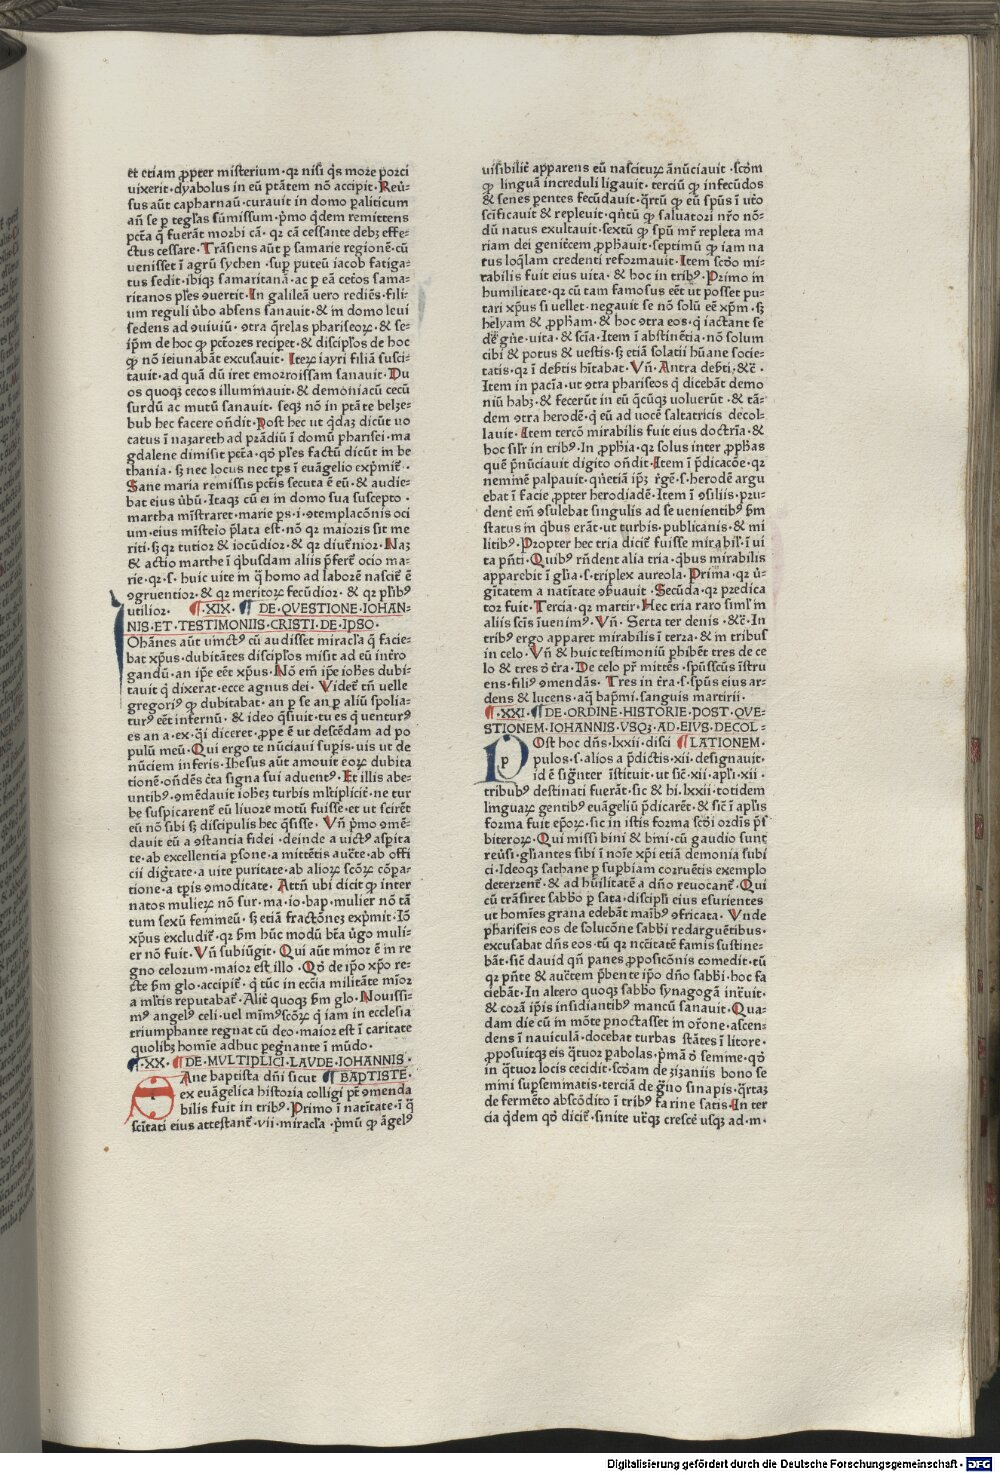 et etiam ꝓpter misterium·qꝛ nisi q̄s more porci
uixerit·dyabolus in eū ptātem nō accipit·Reuꝰ-
sus aūt capharnaū·curauit in domo paliticum
añ se p tegl̄as sūmissum·pͥmo q̄dem remittens
pctā q̄ fuerāt morbi cā·qꝛ cā cessante debꝫ effe-
ctus cessare·Trāsiens aūt p samarie regionē·cū
venisset ī agrū sychen·sup̱ puteū iacob fatiga-
tus sedit·ibiqꝫ samaritanā·ac p eā cet̄os sama-
ritanos pl̄es ꝯuertit·In galileā uero rediēs·fili-
um reguli ūbo absens sanauit·& in domo leui
sedens ad ꝯuiuiū·ꝯtra q̄relas phariseoꝝ·& se-
ip̄m de hoc ꝙ pctōres recip̱et·& discipl̄os de hoc
ꝙ nō ieiunabāt excusauit·Iteꝝ iayri filiā susci-
tauit·ad quā dū iret emozroissam sanauit·Du
os quoqꝫ cecos illuminauit·& demoniacū cecū
surdū ac mutū sanauit·seqꝫ nō in ptāte belꝫe-
bub hec facere on̄dit·Post hec ut q̄daꝫ dicūt uo
catus ī naꝫareth ad prādiū ī domū pharisei·ma
gdalene dimisit pctā·qd̄ pl̄es factū dicūt in be
thania·sꝫ nec locus nec tp̄s ī euāgelio expͥmit̄·
Sane maria remissis pctīs secuta ē eū·& audie-
bat eius ūbū·Itaqꝫ cū ei in domo sua suscepto·
martha mīstraret·marie ps·i·ꝯtemplacōnis oci
um·eius mīsteꝛio p̄lata est·nō qꝛ maioris sit me
riti·sꝫ qꝛ tutior & iocūdior·& qꝛ diut̄nior·Naꝫ
& actio marthe ī q̄busdam aliis p̄fert̄ ocio ma-
rie·qꝛ·s·huic uite in q̄ homo ad laborē nascit̄ ē
ꝯgruentior·& qꝛ meritoꝝ fecūdior·& qꝛ pl̄ibꝰ
utilior· ¶·XIX·¶ DE·QVESTIONE·IOHAN-
NIS·ET·TESTIMONIIS·CRISTI·DE·IPSO·
Ohānes aūt uīnctꝰ cū audisset miracl̄a q̄ facie-
bat xp̄us·dubitātes discipl̄os misit ad eū intro
gandū·an ip̄e eēt xp̄us·Nō em̄ ip̄e ioh̄es dubi-
tauit q̄ dixerat·ecce agnus dei·Videt̄ tn̄ uelle
gregoriꝰ ꝙ dubitabat·an p se an p aliū spolia-
turꝰ eēt infernū·& ideo q̄siuit·tu es q̄ uenturꝰ
es an a·ex·q̄i diceret·ꝓpe ē ut descēdam ad po
pulū meū·Qui ergo te nūciaui supis·uis ut de
nūciem inferis·Ihesus aūt amouit eoꝝ dubita
tionē·on̄dēs cīta signa sui aduentꝰ·Et illis abe-
untibꝰ·ꝯmēdauit ioh̄eꝫ turbis ml̄tiplicit̄·ne tur
be suspicarent̄ eū liuore motū fuisse·et ut scirēt
eū nō sibi sꝫ discipulis hec q̄sisse·Vn̄ pͥmo ꝯmē-
dauit eū a ꝯstantia fidei·deinde a uictꝰ aspita
te·ab excellentia psone·a mittētis auct̄e·ab offi
cii digt̄ate·a uite puritate·ab alioꝝ scōꝝ cōpa-
tione·a tp̄is ꝯmoditate·Attn̄ ubi dicit ꝙ inter
natos mulieꝝ nō sur·ma·io·bap·mulier nō tā
tum sexū femmeū·sꝫ etiā fractōneꝫ expͥmit·Iō
xp̄us excludit̄·qꝛ bm̄ hūc modū btā ūgo muli-
er nō fuit·Vn̄ subiūgit·Qui aūt minor ē in re
gno celorum·maior est illo·Qd̄ de ip̄o xp̄o re-
cte bm̄ glo·accipit̄·q̄ tūc in eccīa militāte mīor
a ml̄tis reputabat̄·Alit̄ quoqꝫ bm̄ glo·Nouissi-
mꝰ angelꝰ celi·uel mīmꝰscōꝝ q̄ iam in ecclesia
triumphante regnat cū deo·maior est ī caritate
quolibꝫ homīe adhuc pegnante ī mūdo·
¶·XX·¶DE·MVLTIPLICI·LAVDE·IOHANNIS·
Sane baptista dn̄i sicut ¶ BAPTISTE·
ex euāgelica historia colligi pt̄ ꝯmenda
bilis fuit in tribꝰ·Primo ī natītate·ī q̄
scītati eius attestant̄·vii·miracl̄a·pͥmū ꝙ āgelꝰ
uisibilit̄ apparens eū nasciturꝝ ānūciauit·scd̄m
ꝙ linguā increduli ligauit·terciū ꝙ infecūdos
& senes pentes fecūdauit·q̄rtū ꝙ eū sp̄us ī utō
scīficauit & repleuit·qn̄tū ꝙ saluatori nr̄o nō-
dū natus exultauit·sextū ꝙ sp̄u mr̄ repleta ma
riam dei genit̄cem ꝓph̄auit·septimū ꝙ iam na
tus loql̄am credenti reformauit·Item scd̄o mi-
rabilis fuit eius uita·& hoc in tribꝰ·Primo in
humilitate·qꝛ cū tam famosus eēt ut posset pu-
tari xp̄us si uellet·negauit se nō solū eē xp̄m·sꝫ
helyam & ꝓph̄am·& hoc ꝯtra eos·q̄ iactant se
de gn̄e·uita·& scīa·Item ī abstinētia·nō solum
cibi & potus & uestis·sꝫ etiā solatii hūane socie-
tatis·qꝛ ī deb̄tis hītabat·Vn̄·Antra deb̄ti·&c̄·
Item in pacīa·ut ꝯtra phariseos q̄ dicebāt demo
niū habꝫ·& fecerūt in eū q̄cūqꝫ uoluerūt·& tā-
dem ꝯtra herodē·q̄ eū ad uocē saltatricis decol-
lauit·Item tercō mirabilis fuit eius doctrīa·&
hoc sil̄r in tribꝰ·In ꝓph̄ia·qꝛ solus inter ꝓph̄as
quē p̄nūciauit digito on̄dit·Item ī p̄dicacōe·qꝛ
neminē palpauit·quīetiā ip̄ꝫ r̄gē·s·herodē argu
ebat ī facie ꝓpter herodiadē·Item ī ꝯsiliis·pru-
dent̄ em̄ ꝯsulebat singulis ad se uenientibꝰ bm̄
status in q̄bus erāt·ut turbis·publicanis·& mi
litibꝰ·Propter hec tria dicit̄ fuisse mirabil̄·ī ui
ta pn̄ti·Quibꝰ rn̄dent alia tria·q̄bus mirabilis
apparebit ī gl̄ia·s·triplex aureola·Prima·qꝛ ū-
gītatem a natītate ꝯbuauit·Secūda·qꝛ predica
tor fuit·Tercia·qꝛ martir·Hec tria raro siml̄ in
aliis scīs īuenimꝰ·Vn̄·Serta ter denis·&c̄·In
tribꝰ ergo apparet mirabilis ī terra·& in tribus
in celo·Vn̄ & huic testimoniū phibēt tres de ce
lo & tres ō t̄ra·De celo pr̄ mittēs·sp̄usscūs īstru
ens·filiꝰ ꝯmendās·Tres in t̄ra·s·sp̄us eius ar-
dens & lucens·aq̄ bap̄mi·sanguis martirii·
¶·XXI·¶DE·ORDINE·HISTORIE·POST·QVE-
STIONEM·IOHANNIS·VSQꝫ·AD·EIVS·DECOL-
POst hoc dn̄s·lxxii·disci ¶LATIONEM·
pulos·s·alios a p̄dictis·xii·designauit·
id ē sign̄ter īstituit·ut sic̄·xii·apl̄i·xii·
tribubꝰ destinati fuerāt·sic & hi·lxxii·totidem
linguaꝝ gentibꝰ euāgeliū p̄dicarēt·& sic̄ ī apl̄is
forma fuit ep̄oꝝ·sic in istis forma scd̄i ordīs p̄s
biteroꝝ·Qui missi bini & bīni·cū gaudio sunt
reūsi·gl̄iantes sibi ī noīe xp̄i etiā demonia subi
ci·Ideoqꝫ sathane p supbiam corruētis exemplo
deterzent̄·& ad hūilitatē a dn̄o reuocant̄·Qui
cū trāsiret sabb̄o p sata·discipl̄i eius esurientes
ut homīes grana edebāt maībꝰ ꝯfricata·Vnde
phariseis eos de solucōne sabb̄i redarguētibus·
excusabat dn̄s eos·tū qꝛ nccītate famis sustine-
bāt·sic̄ dauid qn̄ panes ꝓposicōnis comedit·tū
qꝛ pn̄te & auct̄em p̄bente ip̄o dn̄o sabb̄i·hoc fa
ciebāt·In altero quoqꝫ sabb̄o synagogā int̄uit·
& corā ip̄is insidiantibꝰ mancū sanauit·Qua-
dam die cū in mōte pnoctasset in or̄one·ascen-
dens ī nauiculā·docebat turbas stātes ī litore·
ꝓposuitqꝫ eis q̄tuor pabolas·pͥmā ō semine·qd̄
in q̄tuor locis cecidit·scd̄am de ꝫiꝫaniis bono se
mini supseminatis·terciā de gͣno sinapis·q̄rtaꝫ
de fermēto abscōdito ī tribꝰ farine satis·In ter
cia q̄dem qd̄ dicit̄·sinite utͣqꝫ crescē usqꝫ ad·m·
Digitalisierung gefördert durch die Deutsche Forschungsgemeinschaft - DFG